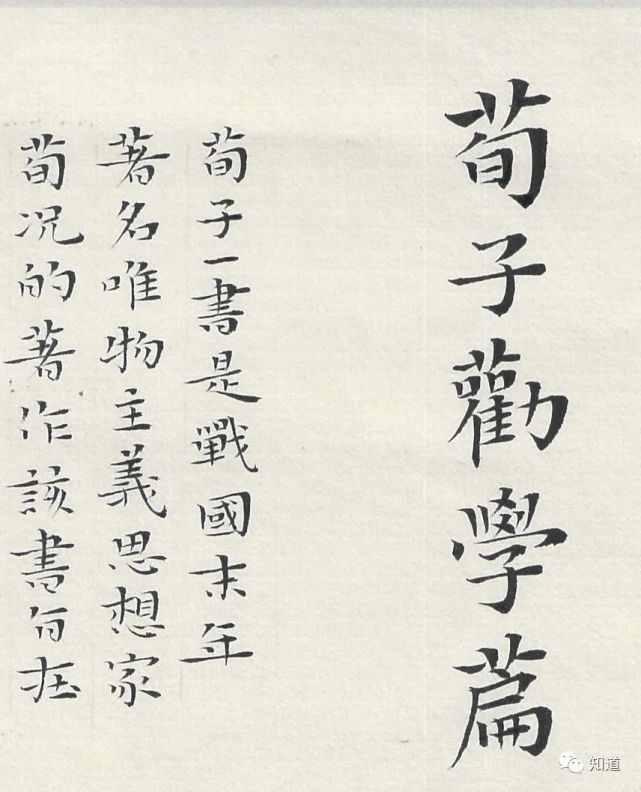 荀子勸學篇
荀子一書是戰國末年
著名唯物主義思想家
荀况的著作該書旨在
知道